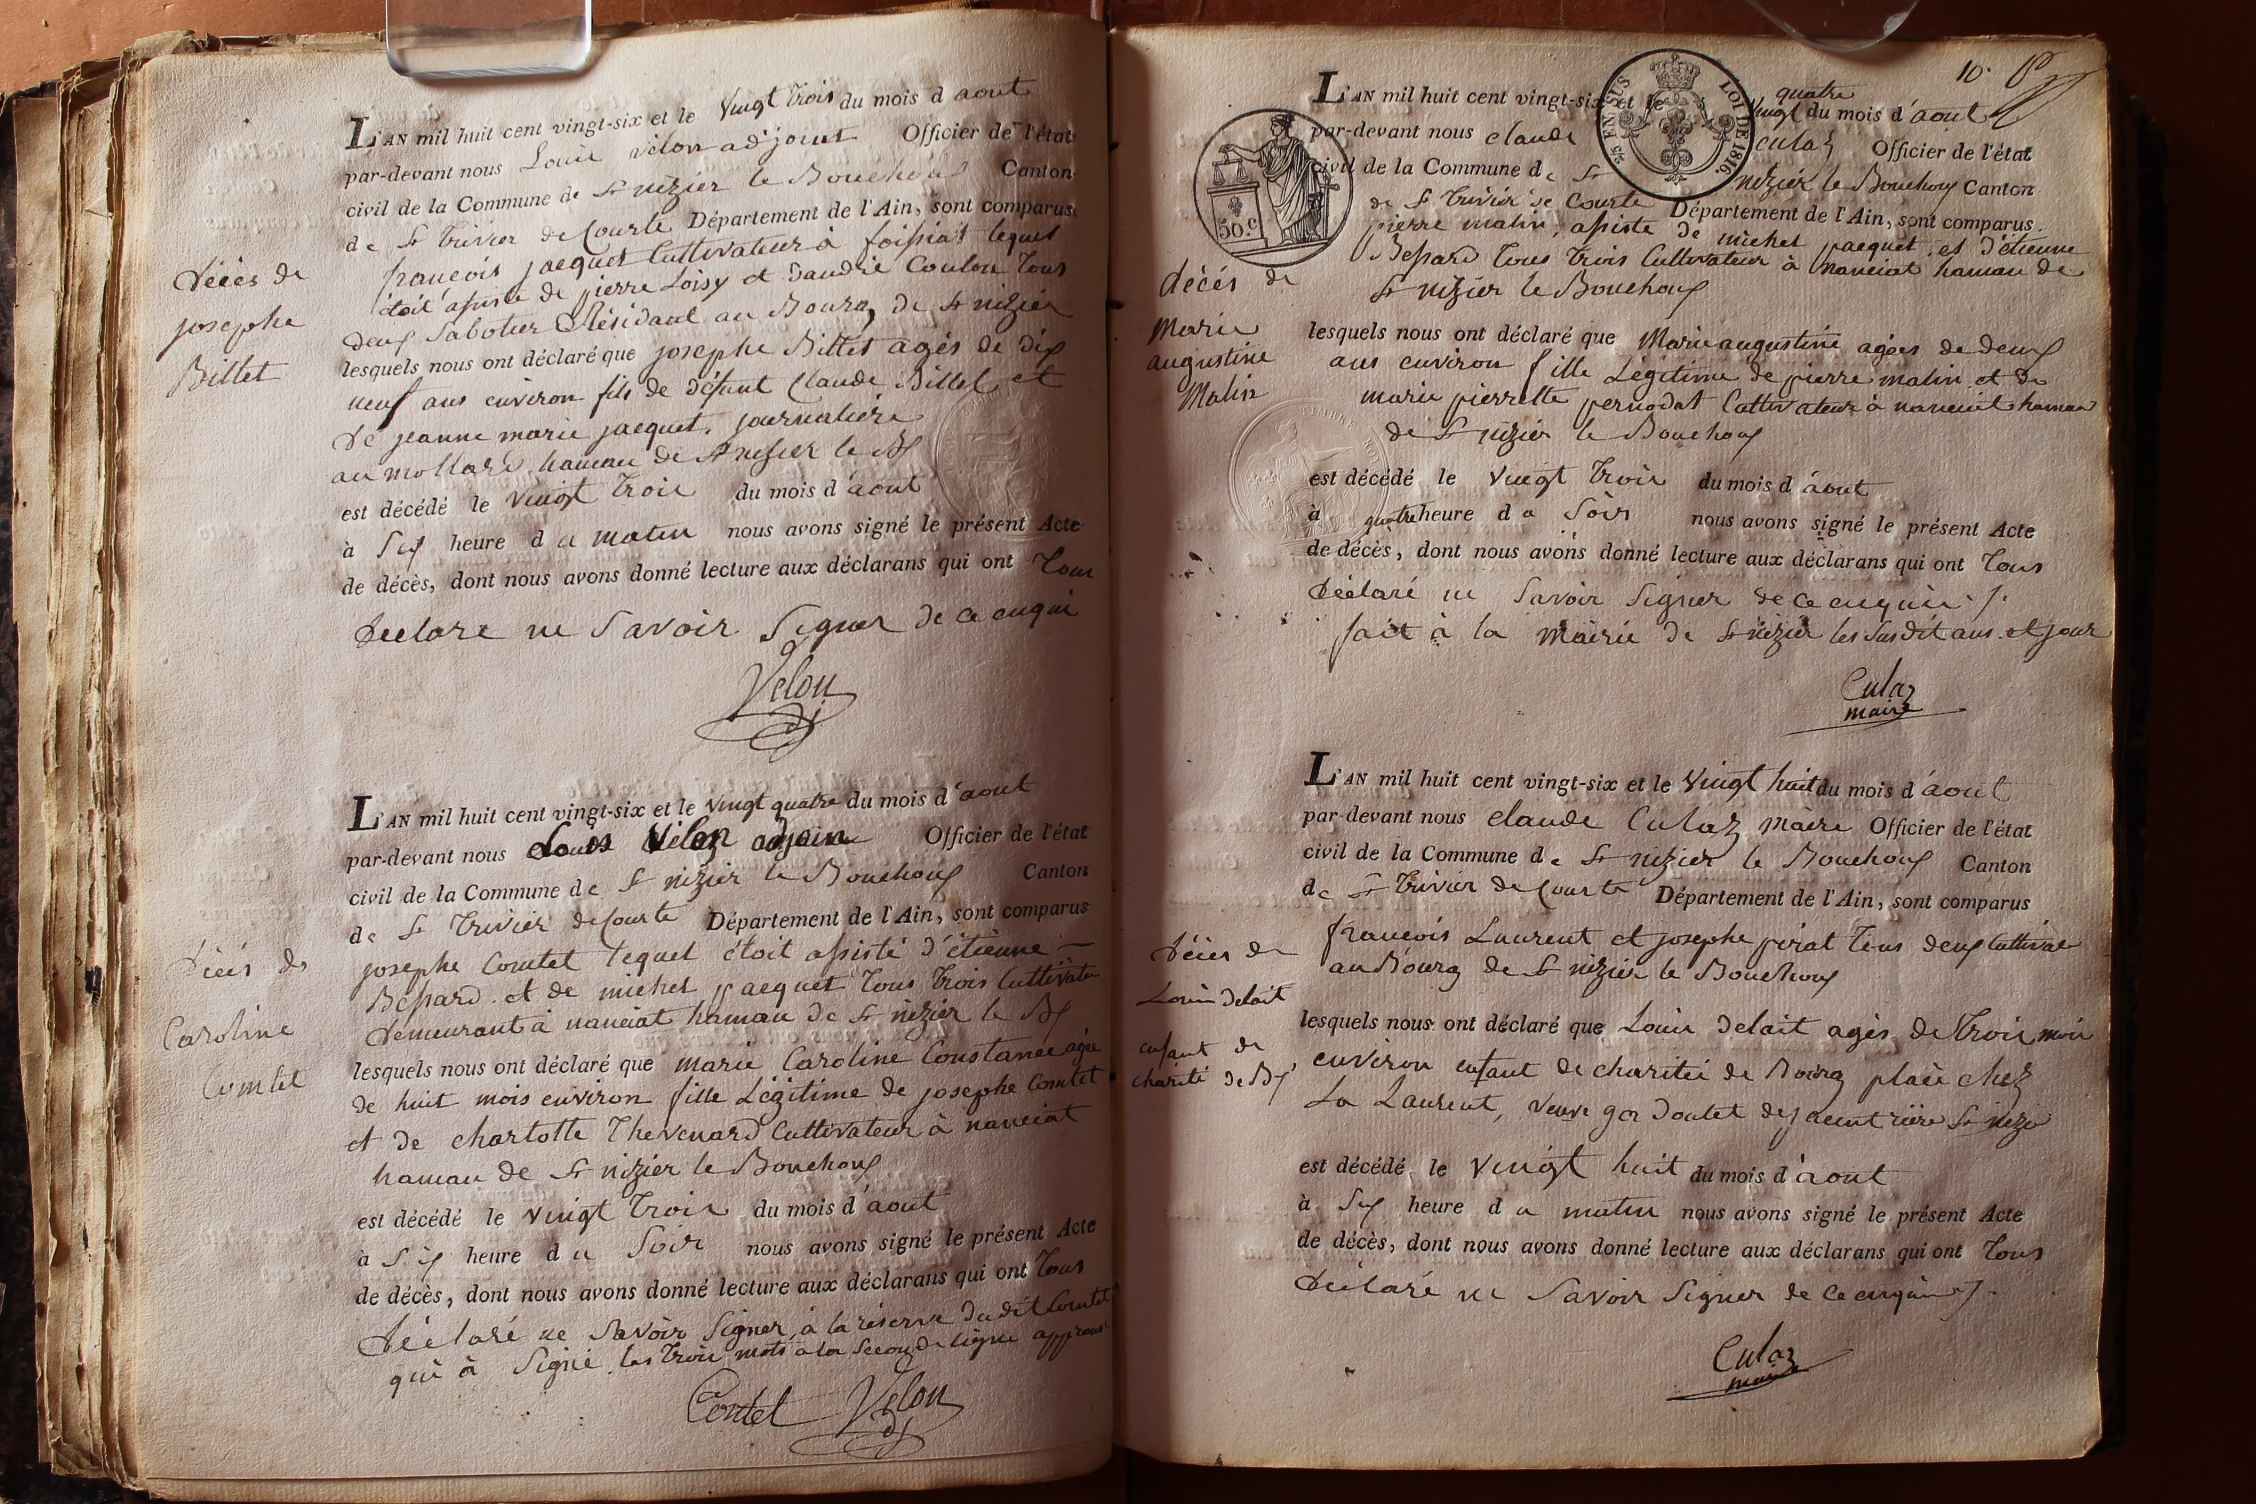 L'AN mil huit cent vingt-six et le vingt trois du mois d'aout
par-devant nous Louis vélon adjoint Officier de l'état
civil de la Commune de St nizier le Bouchoux Canton
de St trivier de Courte Département de l'Ain, sont comparus
françois jacquet Cultivateur à foissiat lequel
étoit assisté de pierre Loisy et d'andré Coulon tous
deux Sabotier Résidant au Bourg de St nizier
décés de
josephe
Billet
lesquels nous ont déclaré que josephe Billet agés de dix
neuf ans environ fils de défunt Claude Billet et
de jeanne marie jacquet, journaliére
au mollard hamau de St nizier le Bx
est décédé le vingt trois du mois d'aout
à Six heure du matin nous avons signé le présent Acte
de décès, dont nous avons donné lecture aux déclarans qui ont tous
déclaré ne Savoir Signer de ce enquis
Velon
adj
L'AN mil huit cent vingt-six et le vingt quatre du mois d'aout
par-devant nous Louis Vélon adjoin Officier de l'état
civil de la Commune de St nizier le Bouchoux Canton
de St trivier de Courte Département de l'Ain, sont comparus
josephe Comtet lequel étoit assisté d'étienne
Bessard et de michel jacquet tous trois Cultivateur
demeurant à nanciat hamau de St nizier le Bx
décés de
Caroline
Comtet
lesquels nous ont déclaré que marie Caroline Constance agée
de huit mois environ fille Légitime de josephe Comtet
et de charlotte Thevenard Cultivateur à nanciat
hamau de St nizier le Bouchoux
est décédé le vingt trois du mois d'aout
à Six heure du Soir nous avons signé le présent Acte
de décès, dont nous avons donné lecture aux déclarans qui ont tous
déclaré ne Savoir Signer, à la réserve du dit Comtet
qui à Signé les trois mots à la Seconde ligne approuvé
Comtet Velon
adj
10.
EN SUS LOI DE 1816.
50.c
quatre
L'AN mil huit cent vingt-six et le vingt du mois d'aout
par-devant nous claude culaz Officier de l'état
civil de la Commune de St nizier le Bouchoux Canton
de St trivier de Courte Département de l'Ain, sont comparus.
pierre malin, assisté de michel jacquet et d'étienne
Bessard tous trois Cultivateur à nanciat hamau de
St nizier le Bouchoux
décés de
Marie
augustine
Malin
lesquels nous ont déclaré que Marie augustine agées de deux
ans environ fille Légitime de pierre malin et de
marie pierrette pernodat Cultivateur à nanciat hamau
de St nizier le Bouchoux
est décédé le vingt trois du mois d'aout
à quatre heure du Soir nous avons signé le présent Acte
de décès, dont nous avons donné lecture aux déclarans qui ont tous
déclaré ne Savoir Signer de ce enquis
fait à la mairie de St nizier les susdit ans et jour
Culaz
maire
L'AN mil huit cent vingt-six et le vingt huit du mois d'aout
par-devant nous claude Culaz maire Officier de l'état
civil de la Commune de St nizier le Bouchoux Canton
de St trivier de Courte Département de l'Ain, sont comparus
françois Laurent et josephe pirat tous deux Cultivat
au Bourg de St nizier le Bouchoux
décés de
Louis delait
enfant de
charité de Bg
lesquels nous ont déclaré que Louis delait agés de trois mois
environ enfant de charitée de Bourg placé chez
La Laurent, veuve
est décédé le vingt huit du mois d'aout
à Six heure du matin nous avons signé le présent Acte
de décès, dont nous avons donné lecture aux déclarans qui ont tous
déclaré ne Savoir Signer de ce enquis
Culaz
maire